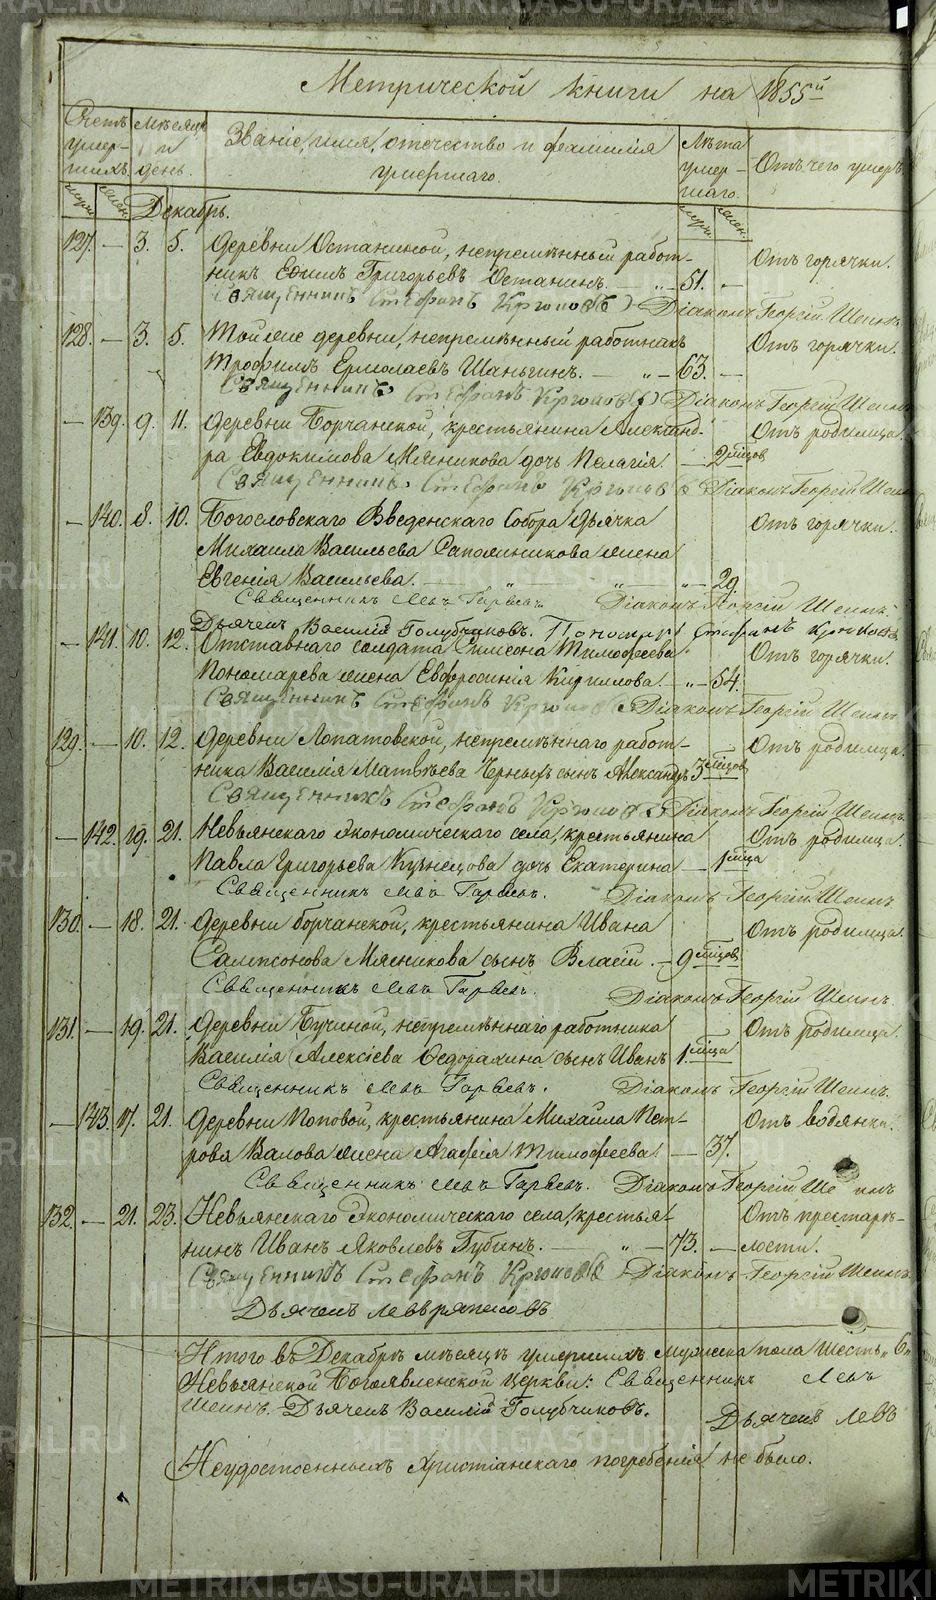 Метрической книги на 1855й
Счетъ умершихъ.
Мѣсяцъ и день.
Званіе, имя, отечество и фамилія умершаго.
Лѣта умершаго.
Отъ чего умеръ.
муж. жен. Декабрь. муж. жен.
127. — 3. 5. Деревни Останиной, непремѣнный работ-
никъ Ефимъ Григорьевъ Останинъ. — „ — 51. — Отъ горячки.
Священникъ Стефанъ Крюковъ Діаконъ Георгій Шеинъ
128. — 3. 5. Тойже деревни, непремѣнный работникъ Отъ горячки.
Трофимъ Ермолаевъ Шаньгинъ. — „ — 63. —
Священникъ Стефанъ Крюковъ Діаконъ Георгій Шеинъ
— 139. 9. 11. Деревни Борчанской, крестьянина Александ- Отъ родимца.
ра Евдокимова Мясникова дочь Пелагія. — 2 мцовъ
Священникъ Стефанъ Крюковъ Діаконъ Георгій Шеинъ
— 140. 8. 10. Богословскаго Введенскаго Собора Дьячка Отъ горячки.
Михаила Васильева Сапожникова жена
Евгенія Васильева. — „ „ „ — 29.
Священникъ Левъ Гаряевъ. Діаконъ Георгій Шеинъ
Дьячекъ Василій Голубчиковъ. Пономарь Стефанъ Крюковъ
— 141. 10. 12. Отставнаго солдата Симеона Тимофеева Отъ горячки.
Пономарева жена Евфросинія Кирилова. — „ — 54.
Священникъ Стефанъ Крюковъ Діаконъ Георгій Шеинъ
129. — 10. 12. Деревни Лопатовской, непремѣннаго работ- Отъ родимца.
ника Василія Матвѣева Черныхъ сынъ Александръ 3 мцовъ
Священникъ Стефанъ Крюковъ Діаконъ Георгій Шеинъ.
— 142. 19. 21. Невьянскаго экономическаго села, крестьянина Отъ родимца.
Павла Григорьева Кузнецова дочь Екатерина — 1 мца
Священникъ Левъ Гаряевъ. Діаконъ Георгій Шеинъ.
130. — 18. 21. Деревни борчанской, крестьянина Ивана Отъ родимца.
Сампсонова Мясникова сынъ Власій. — 9 мцовъ
Священникъ Левъ Гаряевъ. Діаконъ Георгій Шеинъ.
131. — 19. 21. Деревни Бучиной, непремѣннаго работника Отъ родимца.
Василія Алексіева Ѳедорахина сынъ Иванъ 1 мца
Священникъ Левъ Гаряевъ. Діаконъ Георгій Шеинъ.
— 143. 17. 21. Деревни Поповой, крестьянина Михаила Пет- Отъ водянки.
рова Валова жена Агафія Тимофеева — 37.
Священникъ Левъ Гаряевъ. Діаконъ Георгій Ше инъ
132. — 21. 23. Невьянскаго Экономическаго села, крестья- Отъ престарѣ-
нинъ Иванъ Яковлевъ Губинъ. — „ — 73. — лости.
Священникъ Стефанъ Крюковъ Діаконъ Георгій Шеинъ.
Дьячекъ Левъ
Итого въ Декабрѣ мѣсяцѣ умершихъ мужеска пола шесть „ 6„
Невьянской Богоявленской церкви: Священникъ Левъ
Шеинъ. Дьячекъ Василій Голубчиковъ. Дьячекъ Левъ
Неудостоенныхъ Христіанскаго погребенія не было.
METRIKI.GASO-URAL.RU